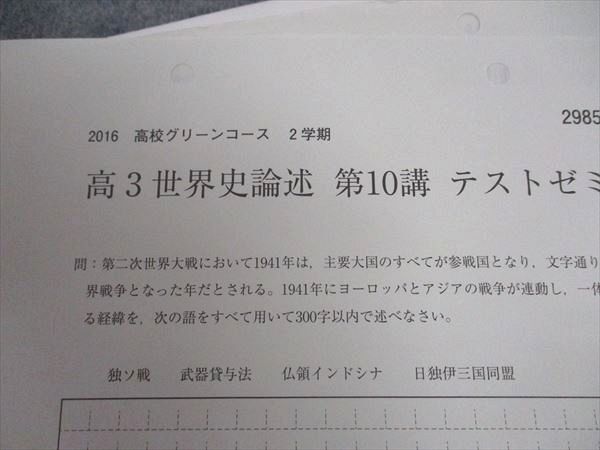 2985
2016 高校グリーンコース 2学期
高3世界史論述 第10講 テストゼミ
問：第二次世界大戦において1941年は，主要大国のすべてが参戦国となり，文字通り
界戦争となった年だとされる。1941年にヨーロッパとアジアの戦争が連動し，一体
る経緯を，次の語をすべて用いて300字以内で述べなさい。
独ソ戦 武器貸与法 仏領インドシナ 日独伊三国同盟